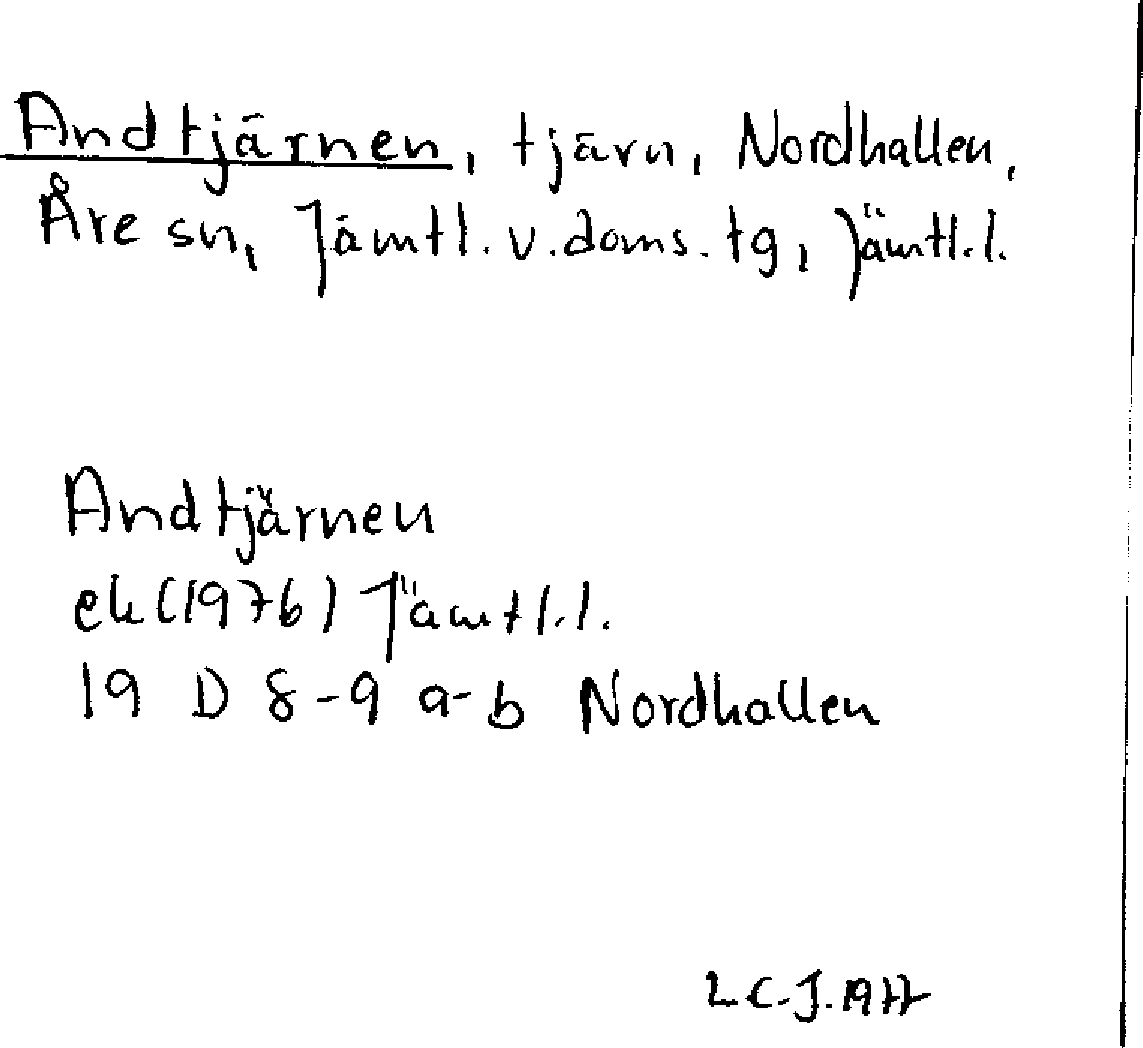 Andtjärnen, tjärn, Nordhallen,
Åre sn, Jämtl. v. doms. tg, Jämtl. l.
Andtjärnen
ek (1976) Jämtl. l.
19 D 8-9 a-b Nordhallen
L C. J. 1977